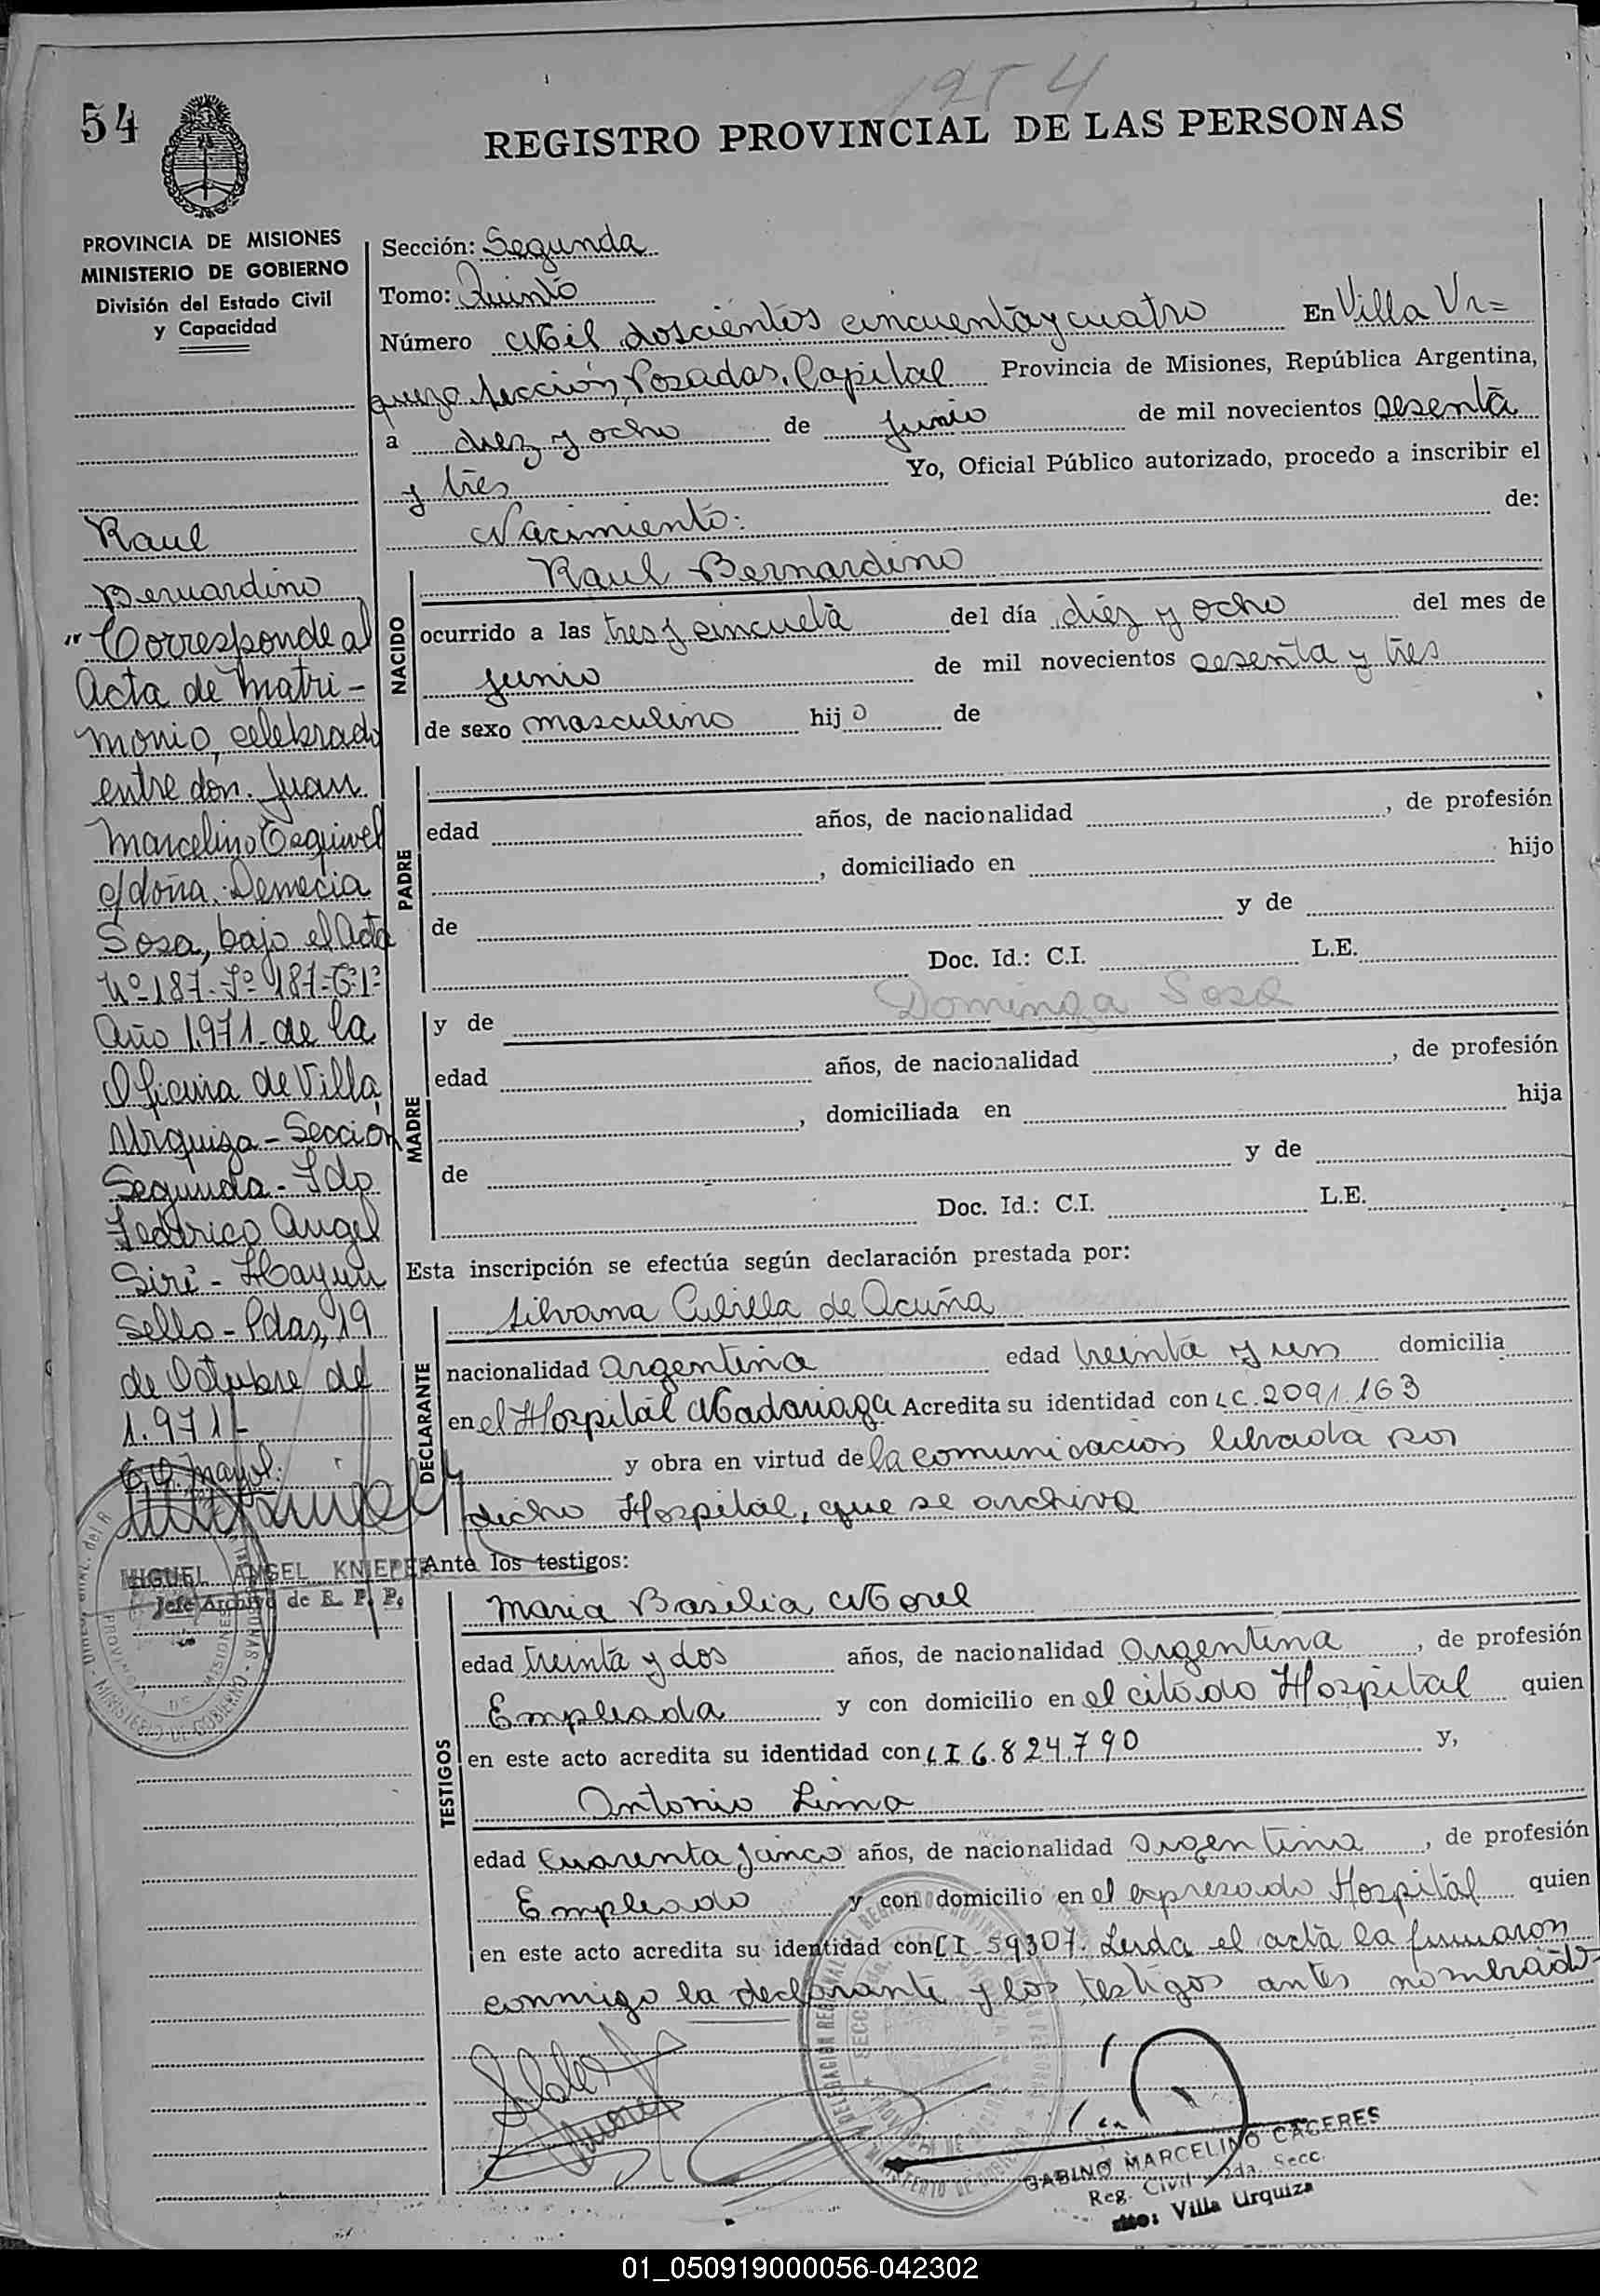 1254
54
REGISTRO PROVINCIAL DE LAS PERSONAS
PROVINCIA DE MISIONES
MINISTERIO DE GOBIERNO
División del Estado Civil
y Capacidad
Raul
Bernardino
"Corresponde al
Acta de Matri-
monio, celebrado
entre don. Juan
Marcelino Esquivel
c/doña. Demecia
Sosa, bajo el Acta
Nº-187-Fº 187-Tº1º
Año 1.971- de la
Oficina de Villa
Urquiza - Sección
Segunda - Fdo
Federico Angel
Siri - Hay un
Sello - Pdas, 19
de Octubre de
1.971/-
MIGUEL ANGEL KNIEPE
Jefe Archivo de R. P. P.
Sección: Segunda
Tomo: Quinto
Número Mil doscientos cincuenta y cuatro En Villa Ur=
quiza sección, Posadas, Capital Provincia de Misiones, República Argentina,
a diez y ocho de junio de mil novecientos sesenta
y tres Yo, Oficial Público autorizado, procedo a inscribir el
Nacimiento: de:
NACIDO
Raul Bernardino
ocurrido a las tres y cincueta del día diez y ocho del mes de
junio de mil novecientos sesenta y tres
de sexo masculino hijo de
PADRE
edad años, de nacionalidad , de profesión
, domiciliado en hijo
de y de
Doc. Id.: C.I. L.E.
MADRE
y de Dominga Sosa
edad años, de nacionalidad , de profesión
, domiciliada en hija
de y de
Doc. Id.: C.I. L.E.
Esta inscripción se efectúa según declaración prestada por:
DECLARANTE
Silvana Cubilla de Acuña
nacionalidad argentina edad treinta y un domicilia
en el Hospital Madariaga Acredita su identidad con LC. 2091.163
y obra en virtud de la comunicacion librada por
dicho Hospital, que se archiva
Ante los testigos:
TESTIGOS
Maria Basilia Morel
edad treinta y dos años, de nacionalidad argentina, de profesión
Empleada y con domicilio en el citado Hospital quien
en este acto acredita su identidad con LI 6.824.790 y,
Antonio Lima
edad cuarenta y cinco años, de nacionalidad argentina, de profesión
Empleado y con domicilio en el expresado Hospital quien
en este acto acredita su identidad con CI 59307. Leida el acta la firmaron
conmigo la declarante y los testigos antes nombrados
GABINO MARCELINO CACERES
Reg. Civil 2da. Secc.
Villa Urquiza
01_050919000056-042302